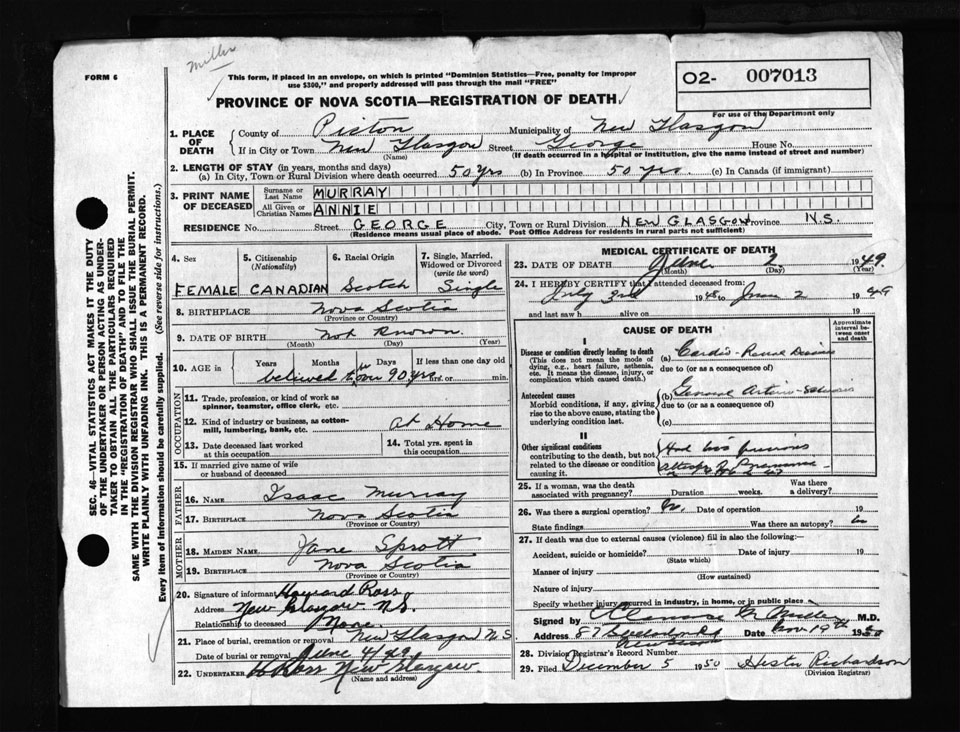 Miller
FORM 6
This form, if placed in an envelope, on which is printed "Dominion Statistics—Free, penalty for improper
use $300," and properly addressed will pass through the mail "FREE"
O2- 007013
PROVINCE OF NOVA SCOTIA—REGISTRATION OF DEATH
For use of the Department only
1. PLACE OF DEATH
County of Pictou Municipality of New Glasgow
If in City or Town New Glasgow Street George House No.
(Name) (If death occurred in a hospital or institution, give the name instead of street and number)
2. LENGTH OF STAY (in years, months and days)
(a) In City, Town or Rural Division where death occurred 50 yrs (b) In Province 50 yrs. (c) In Canada (if immigrant)
3. PRINT NAME OF DECEASED
Surname or Last Name MURRAY
All Given or Christian Names ANNIE
RESIDENCE No. Street GEORGE City, Town or Rural Division NEW GLASGOW Province N.S.
(Residence means usual place of abode. Post Office Address for residents in rural parts not sufficient)
SEC. 46—VITAL STATISTICS ACT MAKES IT THE DUTY
OF THE UNDERTAKER OR PERSON ACTING AS UNDER-
TAKER TO OBTAIN ALL THE PARTICULARS REQUIRED
IN THE "REGISTRATION OF DEATH" AND TO FILE THE
SAME WITH THE DIVISION REGISTRAR WHO SHALL ISSUE THE BURIAL PERMIT.
WRITE PLAINLY WITH UNFADING INK. THIS IS A PERMANENT RECORD.
Every item of information should be carefully supplied. (See reverse side for instructions.)
4. Sex
FEMALE
5. Citizenship (Nationality)
CANADIAN
6. Racial Origin
Scotch
7. Single, Married, Widowed or Divorced (write the word)
Single
8. BIRTHPLACE Nova Scotia
(Province or Country)
9. DATE OF BIRTH Not Known.
(Month) (Day) (Year)
10. AGE in Years Months Days If less than one day old
believed to be over 90 yrs hrs. or min.
OCCUPATION
11. Trade, profession, or kind of work as
spinner, teamster, office clerk, etc.
12. Kind of industry or business, as cotton-
mill, lumbering, bank, etc. At Home
13. Date deceased last worked
at this occupation
14. Total yrs. spent in
this occupation
15. If married give name of wife
or husband of deceased
FATHER
16. NAME Isaac Murray
17. BIRTHPLACE Nova Scotia
(Province or Country)
MOTHER
18. MAIDEN NAME Jane Sprott
19. BIRTHPLACE Nova Scotia
(Province or Country)
20. Signature of informant Ross
Address New Glasgow N.S.
Relationship to deceased None.
21. Place of burial, cremation or removal New Glasgow N.S
Date of burial or removal June 4/49
22. UNDERTAKER Ross New Glasgow
(Name and address)
MEDICAL CERTIFICATE OF DEATH
23. DATE OF DEATH June 2 1949.
(Month) (Day) (Year)
24. I HEREBY CERTIFY that I attended deceased from:
July 3rd 1948 to June 2 1949
and last saw h alive on 19
CAUSE OF DEATH
Approximate interval between onset and death
I
Disease or condition directly leading to death
(This does not mean the mode of
dying, e.g., heart failure, asthenia,
etc. It means the disease, injury, or
complication which caused death.)
(a) Cardio-Renal Disease
due to (or as a consequence of)
Antecedent causes
Morbid conditions, if any, giving
rise to the above cause, stating the
underlying condition last.
(b) General Arterio-
due to (or as a consequence of)
(c)
II
Other significant conditions
contributing to the death, but not
related to the disease or condition
causing it.
Had two previous
25. If a woman, was the death
associated with pregnancy? Duration weeks. Was there
a delivery?
26. Was there a surgical operation? No. Date of operation 19
State findings Was there an autopsy? No
27. If death was due to external causes (violence) fill in also the following:—
Accident, suicide or homicide? Date of injury 19
(State which)
Manner of injury
(How sustained)
Nature of injury
Specify whether injury occurred in industry, in home, or in public place
Signed by G. Miller M.D.
Address 87 Rd Date Nov 19th 1950
28. Division Registrar's Record Number
29. Filed December 5 1950 Hester Richardson
(Division Registrar)